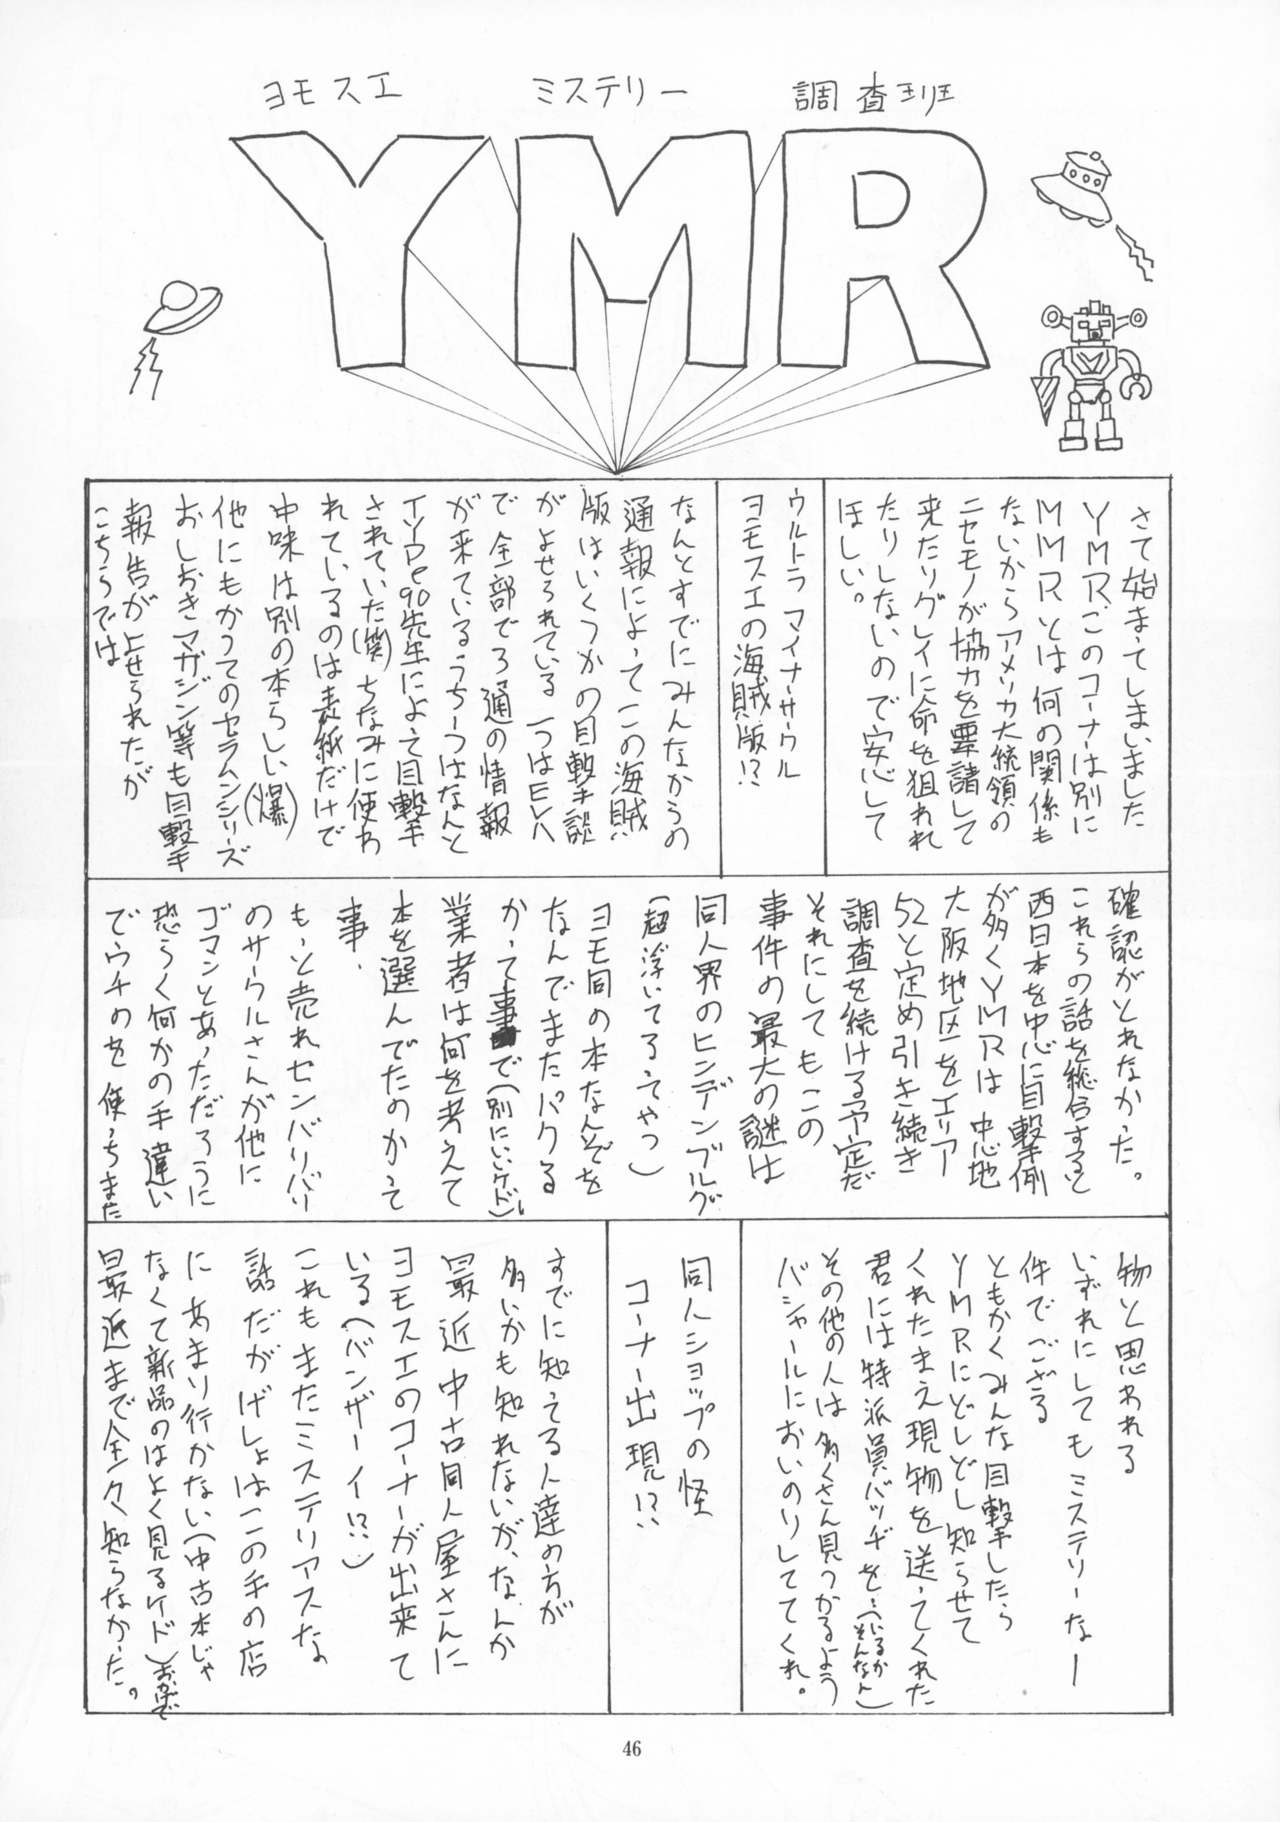 ヨモスエ ミステリー 調査班
YMR
さて始まってしまいました
YMR、このコーナーは別に
MMRとは何の関係も
ないからアメリカ大統領の
ニセモノが協力を要請して
来たりグレイに命を狙われ
たりしないので安心して
ほしい。
ウルトラマイナーサークル
ヨモスエの海賊版!?
なんとすでにみんなからの
通報によってこの海賊
版はいくつかの目撃談
がよせられている 一つはEVA
で全部で3通の情報
が来ているうち一つはなんと
TYPe90先生によって目撃
されていた(笑)ちなみに使わ
れているのは表紙だけで
中味は別の本らしい(爆)
他にもかつてのセラムンシリーズ
おしおきマガジン等も目撃
報告がよせられたが
こちらでは
確認がとれなかった。
これらの話を総合すると
西日本を中心に目撃例
が多くYMRは中心地
大阪地区をエリア
52と定め引き続き
調査を続ける予定だ
それにしてもこの
事件の最大の謎は
同人界のヒンデンブルグ
(超浮いてるってやつ)
ヨモ同の本なんぞを
なんでまたパクる
かって事で(別にいいケド)
業者は何を考えて
本を選んでたのかって
事、
もっと売れセンバリバリ
のサークルさんが他に
ゴマンとあっただろうに
恐らく何かの手違い
でウチのを使っちまった
物と思われる
いずれにしてもミステリーな
件でござるー
ともかくみんな目撃したら
YMRにどしどし知らせて
くれたまえ現物を送ってくれた
君には特派員バッヂを、(いるかそんなん)
その他の人は多くさん見つかるよう
バシャールにおいのりしててくれ。
同人ショップの怪
コーナー出現!?
すでに知ってる人達の方が
多いかも知れないが、なんか
最近中古同人屋さんに
ヨモスエのコーナーが出来て
いる(バンザーイ!?)
これもまたミステリアスな
話だがげしょはこの手の店
にあまり行かない(中古本じゃ
なくて新品のはよく見るケド)おかげで
最近まで全々知らなかった。
46